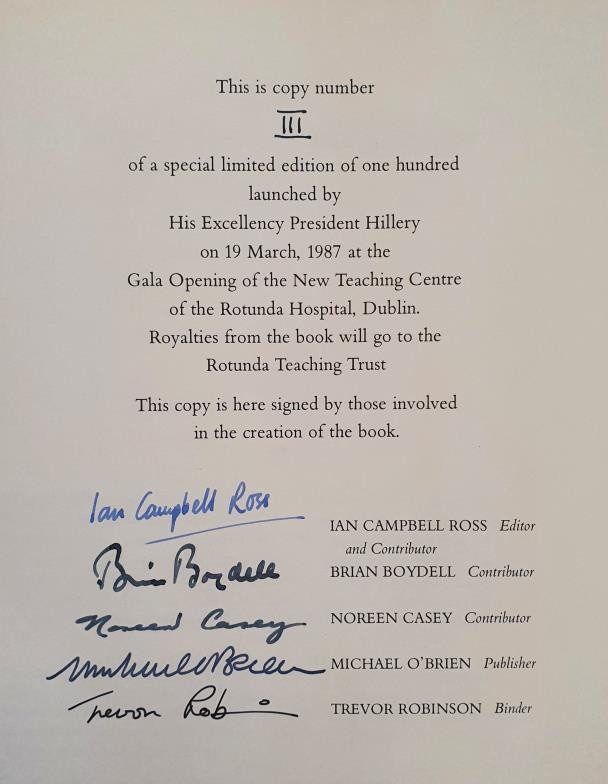 This is copy number
III
of a special limited edition of one hundred
launched by
His Excellency President Hillery
on 19 March, 1987 at the
Gala Opening of the New Teaching Centre
of the Rotunda Hospital, Dublin.
Royalties from the book will go to the
Rotunda Teaching Trust
This copy is here signed by those involved
in the creation of the book.
Ian Campbell Ross
IAN CAMPBELL ROSS Editor
and Contributor
Brian Boydell
BRIAN BOYDELL Contributor
Noreen Casey
NOREEN CASEY Contributor
Michael O'Brien
MICHAEL O'BRIEN Publisher
Trevor Robinson
TREVOR ROBINSON Binder